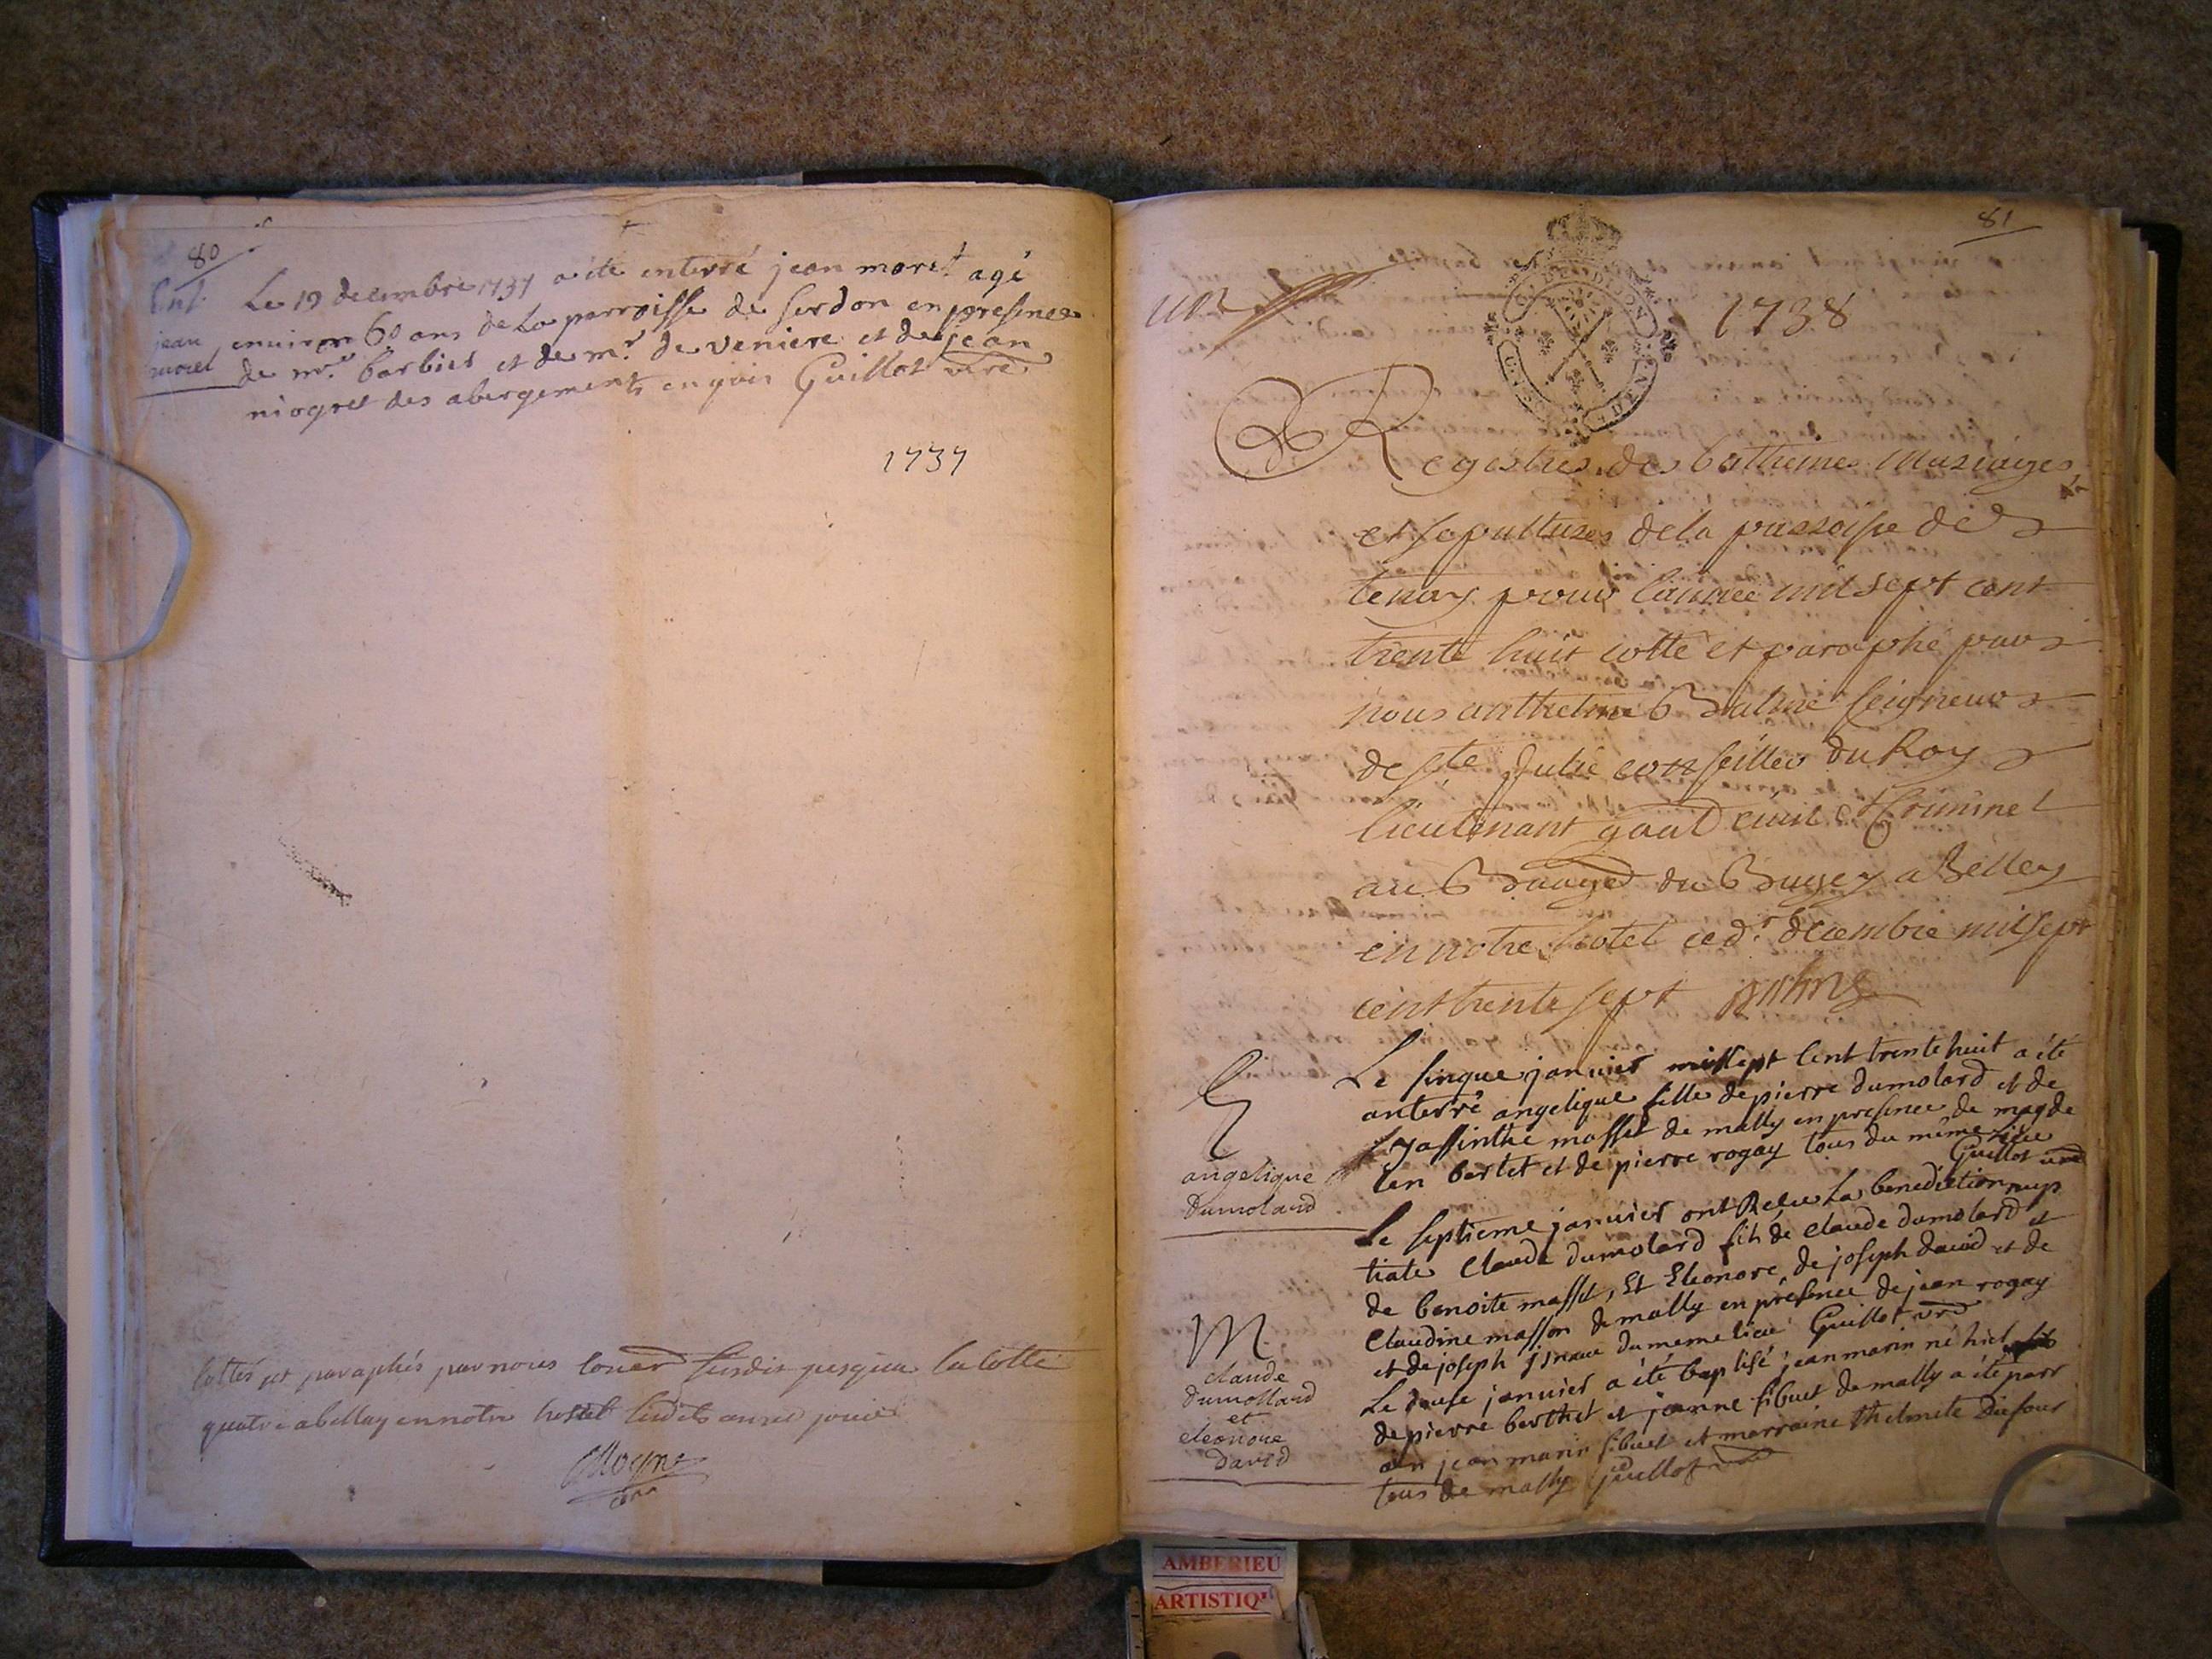 80
Ent.
jean
moret
Le 19 decembre 1737 a été enterré jean moret agé
environ 60 ans de la parroisse de serdon en presence
de mr. barbier et de mr. de veniere et de jean
niogret des abergements en foix Guillot vre
1737
cottés et paraphés par nous louer susdit jusqua la cotte
quatre a belley en notre hostel lesdits an et jour
81
1738
Registres des bathemes Mariages
et sepultures de la parroisse de
tenay pour l'année mil sept cent
trente huit cotté et paraphé par
nous anthelme Balme seigneur
de ste Julie conseiller du Roy
lieutenant gnal civil et Criminel
au Bauge du Bugey a Belley
en notre hotel ce d. decembre mil sept
cent trente sept
angelique
Dumolard
Le sinque janvier mil sept cent trente huit a été
anterré angelique fille de pierre dumolard et de
hyassinthe masset de mally en presence de magde
len bertet et de pierre rogay tous du même lieu
Guillot vre
M
claude
Dumollard
et
eleonore
David
Le septieme janvier ont Recu La benediction nup
tiale Claude dumolard fils de claude dumolard et
de benoite masset, Et Eleonore de joseph david et de
Claudine masson de mally en présence de jean rogay
et de joseph du meme lieu Guillot vre
Le douse janvier a été baptisé jean marin né hier
de pierre berthet et jeanne sibuet de mally a été parr
ain jean marin sibuet et marraine thelmete Dufour
tous de mally Guillot vre
AMBERIEU
ARTISTIQ'